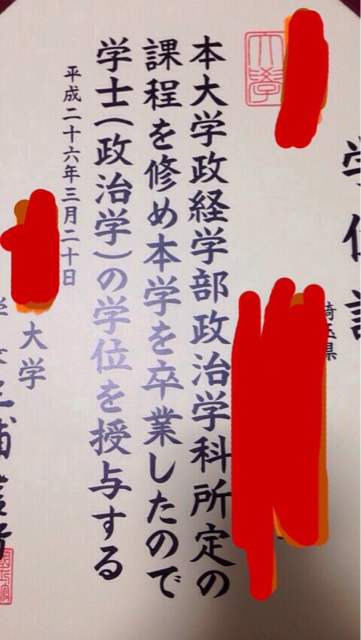 学位記
埼玉県
本大学政経学部政治学科所定の
課程を修め本学を卒業したので
学士（政治学）の学位を授与する
平成二十六年三月二十日
大学